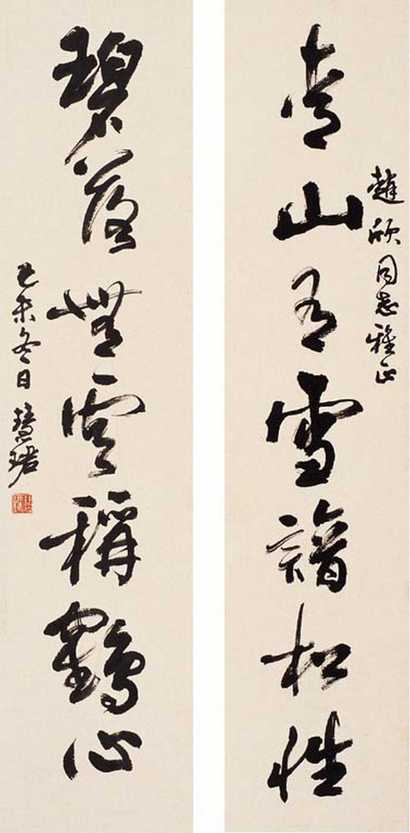 趙欣同志雅正
青山有雪諳松性
碧落無雲稱鶴心
己未冬日 慧珺